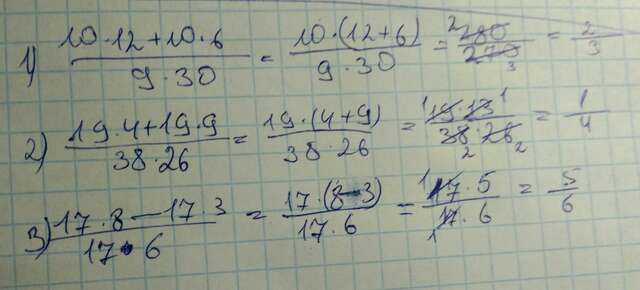 1) (10·12+10·6)/(9·30) = (10·(12+6))/(9·30) = ²180/270₃ = 2/3
2) (19·4+19·9)/(38·26) = (19·(4+9))/(38·26) = ¹19·13¹/38₂·26₂ = 1/4
3) (17·8-17·3)/(17·6) = (17·(8-3))/(17·6) = ¹17·5/₁17·6 = 5/6